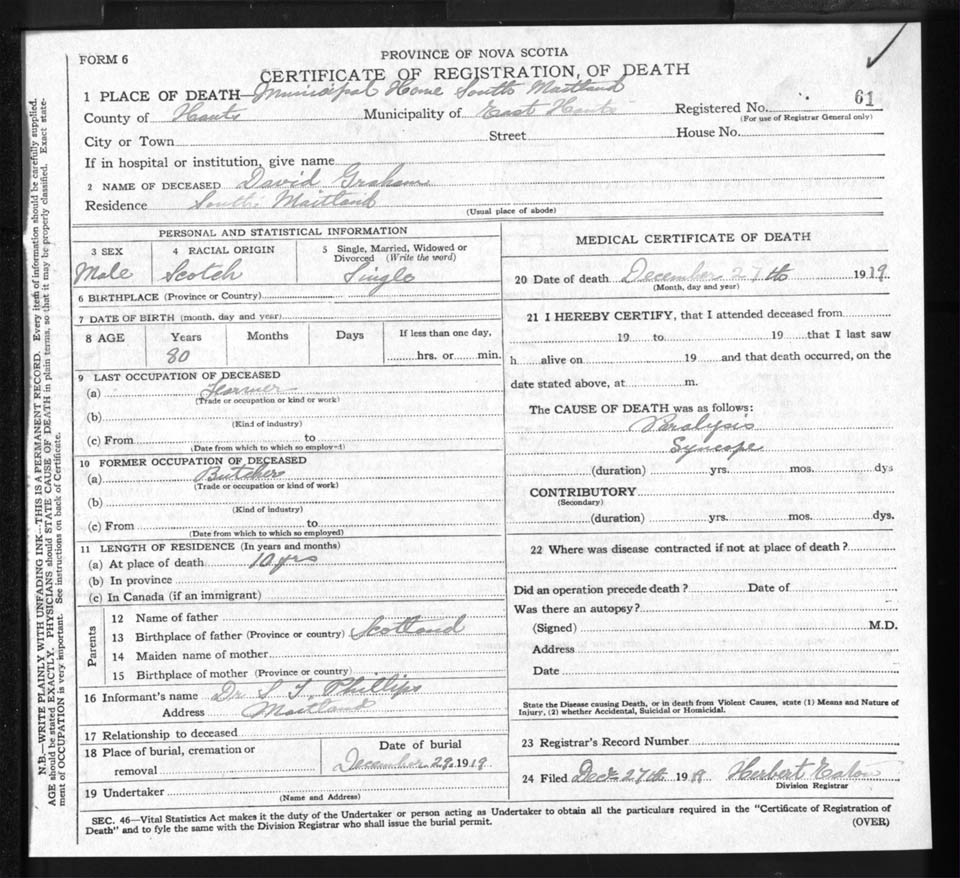 FORM 6
PROVINCE OF NOVA SCOTIA
CERTIFICATE OF REGISTRATION, OF DEATH
1 PLACE OF DEATH—Municipal Home South Maitland
County of Hants Municipality of East Hants Registered No. 61
(For use of Registrar General only)
City or Town Street House No.
If in hospital or institution, give name
2 NAME OF DECEASED David Graham
Residence South Maitland
(Usual place of abode)
PERSONAL AND STATISTICAL INFORMATION
3 SEX 4 RACIAL ORIGIN 5 Single, Married, Widowed or
Divorced (Write the word)
Male Scotch Single
6 BIRTHPLACE (Province or Country)
7 DATE OF BIRTH (month, day and year)
8 AGE Years Months Days If less than one day,
80 hrs. or min.
9 LAST OCCUPATION OF DECEASED
(a) Farmer
(Trade or occupation or kind or work)
(b)
(Kind of industry)
(c) From to
(Date from which to which so employed)
10 FORMER OCCUPATION OF DECEASED
(a) Butcher
(Trade or occupation or kind of work)
(b)
(Kind of industry)
(c) From to
(Date from which to which so employed)
11 LENGTH OF RESIDENCE (In years and months)
(a) At place of death 10 yrs
(b) In province
(c) In Canada (if an immigrant)
Parents
12 Name of father
13 Birthplace of father (Province or country) Scotland
14 Maiden name of mother
15 Birthplace of mother (Province or country)
16 Informant's name Dr S T Phillips
Address Maitland
17 Relationship to deceased
18 Place of burial, cremation or
removal
Date of burial
December 29, 1919
19 Undertaker
(Name and Address)
MEDICAL CERTIFICATE OF DEATH
20 Date of death December 27th 1919
(Month, day and year)
21 I HEREBY CERTIFY, that I attended deceased from
19 to 19 that I last saw
h alive on 19 and that death occurred, on the
date stated above, at m.
The CAUSE OF DEATH was as follows:
Paralysis
Syncope
(duration) yrs. mos. dys
CONTRIBUTORY
(Secondary)
(duration) yrs. mos. dys.
22 Where was disease contracted if not at place of death?
Did an operation precede death? Date of
Was there an autopsy?
(Signed) M.D.
Address
Date
State the Disease causing Death, or in death from Violent Causes, state (1) Means and Nature of
Injury, (2) whether Accidental, Suicidal or Homicidal.
23 Registrar's Record Number
24 Filed Dec 27th 1918 Herbert Eaton
Division Registrar
SEC. 46—Vital Statistics Act makes it the duty of the Undertaker or person acting as Undertaker to obtain all the particulars required in the "Certificate of Registration of
Death" and to fyle the same with the Division Registrar who shall issue the burial permit.
(OVER)
N.B.—WRITE PLAINLY WITH UNFADING INK—THIS IS A PERMANENT RECORD. Every item of information should be carefully supplied.
AGE should be stated EXACTLY. PHYSICIANS should STATE CAUSE OF DEATH in plain terms, so that it may be properly classified. Exact state-
ment of OCCUPATION is very important. See instructions on back of Certificate.